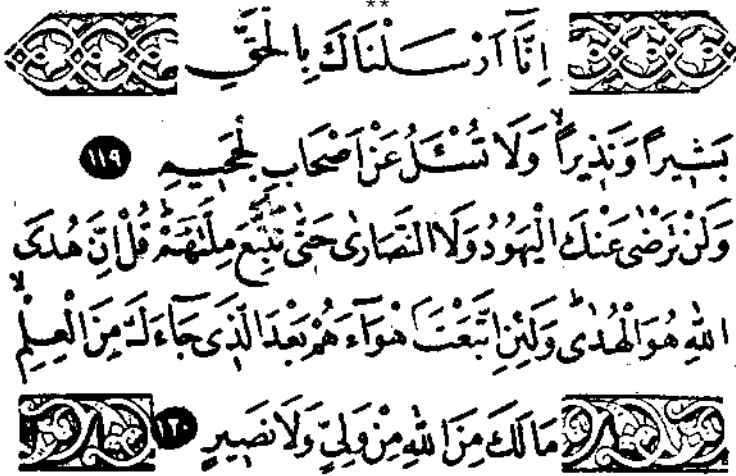 **
اِنَّٓا اَرْسَلْنَاكَ بِالْحَقِّ
بَشٖيرًا وَنَذٖيرًاۙ وَلَا تُسْـَٔلُ عَنْ اَصْحَابِ الْجَحٖيمِ ١١٩
وَلَنْ تَرْضٰى عَنْكَ الْيَهُودُ وَلَا النَّصَارٰى حَتّٰى تَتَّبِعَ مِلَّتَهُمْۜ قُلْ اِنَّ هُدَى
اللّٰهِ هُوَ الْهُدٰىۜ وَلَئِنِ اتَّبَعْتَ اَهْوَٓاءَهُمْ بَعْدَ الَّذٖى جَٓاءَكَ مِنَ الْعِلْمِۙ
مَا لَكَ مِنَ اللّٰهِ مِنْ وَلِىٍّ وَلَا نَصٖيرٍ ١٢٠